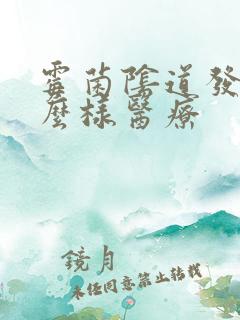 霉菌陰道發
麼樣醫療
鏡月
未经同意禁止转载